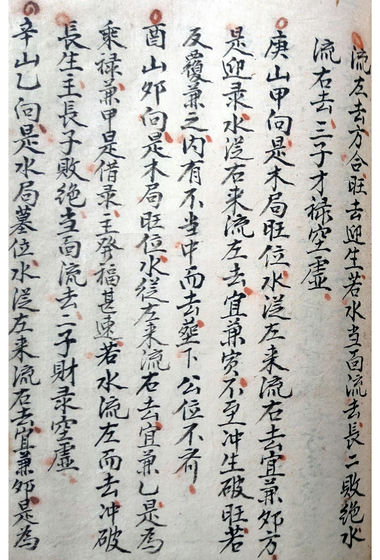 流左去方合旺去迎生若水当面流去長二敗絶水
流右去三子才禄空虚
庚山甲向是木局旺位水從左來流右去宜兼夘方
是迎录水從右來流左去宜兼寅不至冲生破旺若
反覆兼之内有不当中而去塋下公位不齐
酉山夘向是木局旺位水從左來流右去宜兼乙是為
乘禄兼甲是借录主發福甚速若水流左而去冲破
長生主長子敗絶当面流去二子財录空虚
辛山乙向是水局墓位水從左來流右去宜兼夘是為